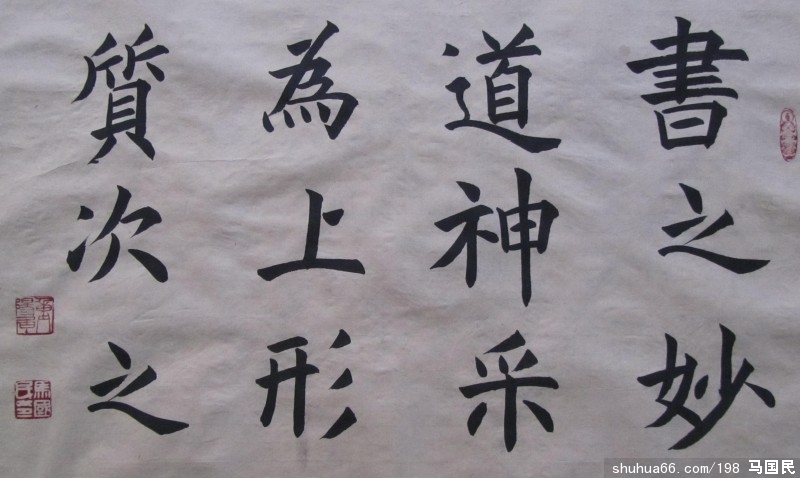 書之妙
道神采
為上形
質次之
馬國
shuhua66.com/198 马国民